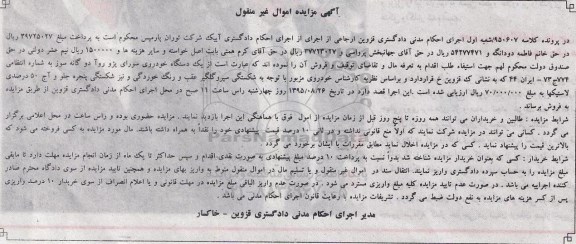 آگهی مزایده اموال غیر منقول
در پرونده کلاسه ۹۵۰۶۰۷/شعبه اول اجرای احکام مدنی دادگستری قزوین ارجاعی از اجرای احکام دادگستری آبیک شرکت توران پارمیس محکوم است به پرداخت مبلغ ۳۹۷۲۵۰۲۷ ریال
در حق خانم فاطمه دودانگه و ۵۴۲۷۷۴۷۱ ریال در حق آقای جهانبخش و ۳۹۷۲۳۰۲۷ ریال در حق آقای کرم همتی بابت اصل خواسته و سایر هزینه ها و ۱۵۰۰۰۰۰ ریال نیم عشر دولتی در حق
صندوق دولت محکوم لهم جهت استیفاء طلب اقدام به تعرفه مال و تقاضای توقیف و فروش آن را نموده اند که عبارت است از یک دستگاه خودروی سواری پژو روآ دو گانه سوز به شماره انتظامی
۷۷۴ج۷۳ – ایران ۴۴ که به نشانی ک قزوین خ قراردارد و براساس نظریه کارشناس خودروی مزبور با توجه به شکستگی سپر و گلگیر عقب و رنگ خوردگی و نیز شکستگی پنجره جلو و آج ۵۰ درصدی
لاستیکها به مبلغ ۷۰/۰۰۰/۰۰۰ ریال ارزیابی شده است .این اجرا قصد دارد در تاریخ ۱۳۹۵/۰۸/۲۶ روز چهارشنبه راس ساعت ۱۱ صبح در محل اجرای احکام مدنی دادگستری قزوین از طریق مزایده
به فروش برساند .
شرایط مزایده : طالبین و خریداران می توانند همه روزه تا پنج روز قبل از زمان مزایده از اموال فوق با هماهنگی این اجرا بازدید نمایند . مزایده حضوری بوده و راس ساعت در محل اعلامی برگزار
می گردد . کسانی می توانند در مزایده شرکت نمایند که اولاً منع قانونی نداشته و در ثانی ۱۰ درصد قیمت پیشنهادی خود را نقداً به همراه داشته باشند. مال مورد مزایده به کسی فروخته می شود که
بالاترین قیمت را پیشنهاد نماید . کسی که در مزایده اخلال نماید مطابق مقررات با ایشان برخورد می گردد
شرایط خریدار : کسی که بعنوان خریدار مزایده شناخته شد بدواً نسبت به پرداخت ۱۰ درصد مبلغ پیشنهادی به صورت نقدی اقدام و سپس حداکثر تا یک ماه از زمان انجام مزایده مهلت دارد تا مابقی
مبلغ مزایده را به حساب سپرده دادگستری واریز نمایند. انتقال سند در اموال غیر منقول و یا تسلیم مال در اموال منقول منوط به واریز بهای مزایده و همچنین تایید مزایده از سوی دادگاه محترم صادر
کننده اجراییه می باشد . در صورت عدم تایید مزایده کلیه مبلغ واریزی مسترد می شود . در صورت عدم واریز الباقی مبلغ مزایده در مهلت قانونی و یا اعلام انصراف از سوی خریدار ۱۰ درصد واریزی
پس از کسر هزینه های مزایده به نفع دولت ضبط می گردد . تشریفات مزایده با رعایت قانون اجرای احکام مدنی می باشد .
مدیر اجرای احکام مدنی دادگستری قزوین - خاکسار